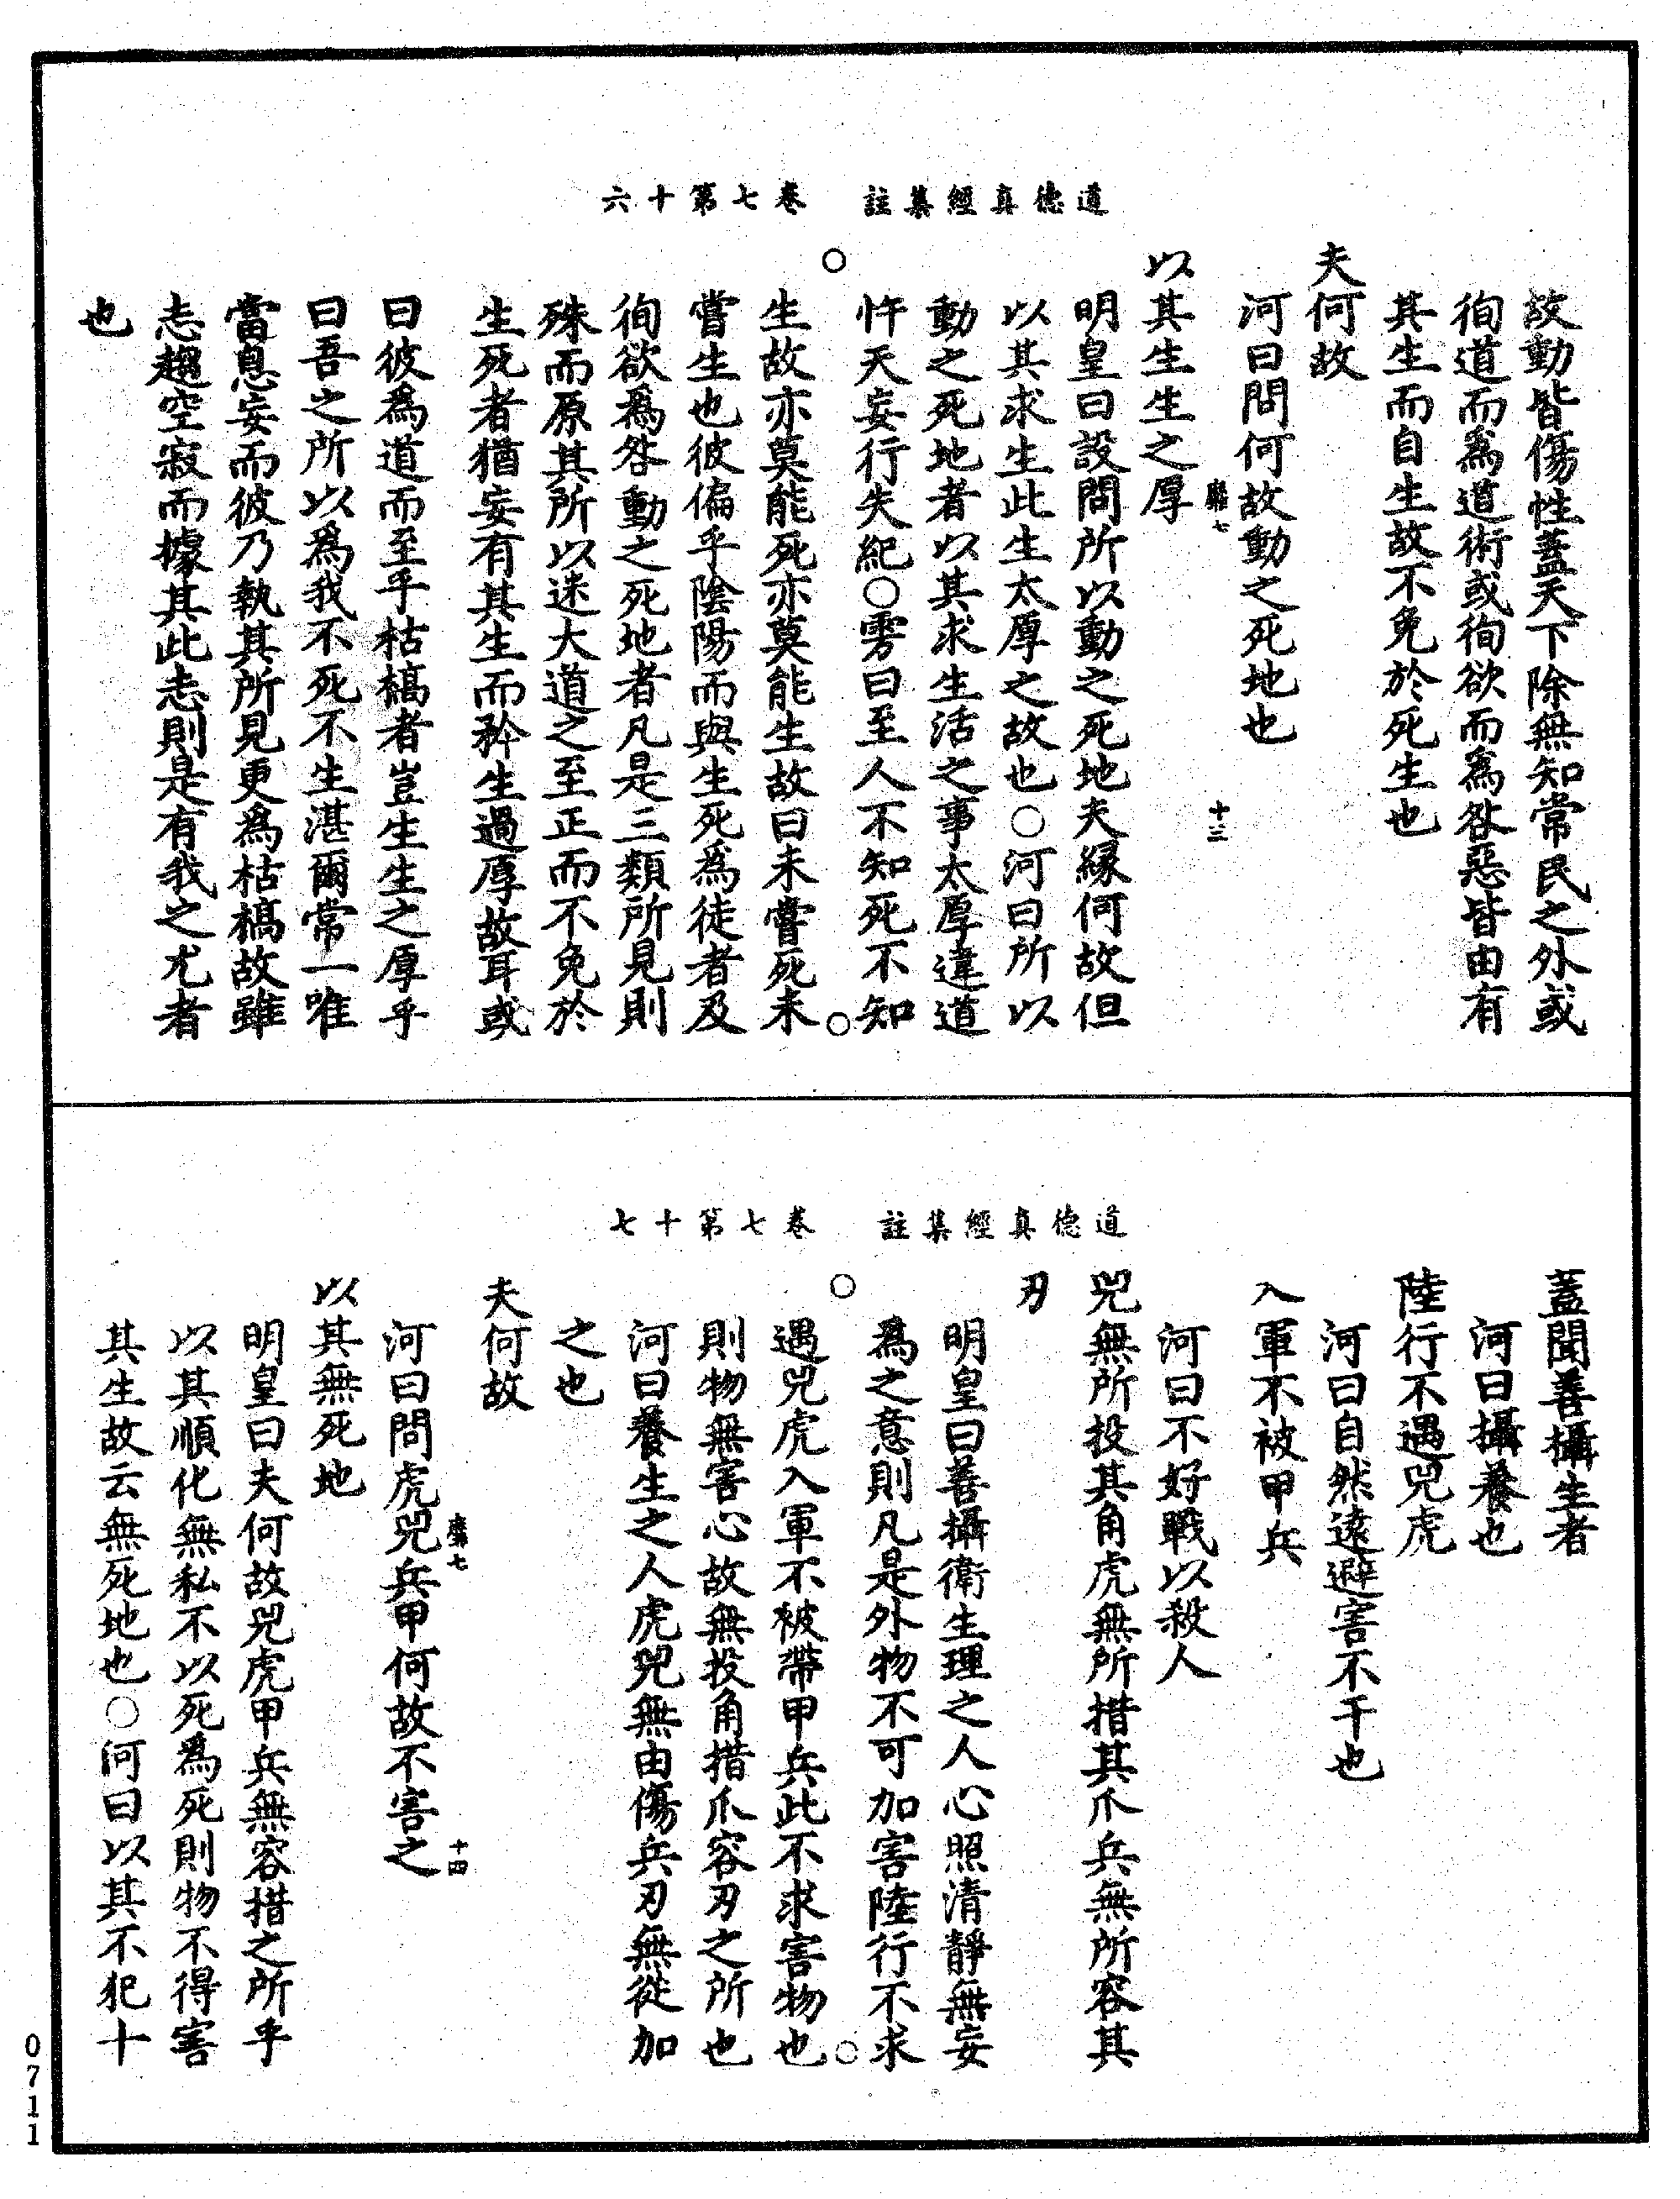 道德真經集註　卷七第十六
故動皆傷性蓋天下除無知常民之外或
徇道而爲道術或徇欲而爲咎惡皆由有
其生而自生故不免於死生也
夫何故
河曰問何故動之死地也
廉七　十三
以其生生之厚
明皇曰設問所以動之死地夫緣何故但
以其求生此生太厚之故也○河曰所以
動之死地者以其求生活之事太厚違道
忤天妄行失紀○雱曰至人不知死不知
○　○
生故亦莫能死亦莫能生故曰未嘗死未
嘗生也彼偏乎陰陽而與生死爲徒者及
徇欲爲咎動之死地者凡是三類所見則
殊而原其所以迷大道之至正而不免於
生死者猶妄有其生而矜生過厚故耳或
曰彼爲道而至乎枯槁者豈生生之厚乎
曰吾之所以爲我不死不生湛爾常一唯
當息妄而彼乃執其所見更爲枯槁故雖
志趨空寂而據其此志則是有我之尤者
也
道德真經集註　卷七第十七
蓋聞善攝生者
河曰攝養也
陸行不遇兕虎
河曰自然遠避害不干也
入軍不被甲兵
河曰不好戰以殺人
兕無所投其角虎無所措其爪兵無所容其
刃
明皇曰善攝衛生理之人心照清靜無妄
爲之意則凡是外物不可加害陸行不求
○　○
遇兕虎入軍不被帶甲兵此不求害物也
則物無害心故無投角措爪容刃之所也
河曰養生之人虎兕無由傷兵刃無從加
之也
夫何故
廉七　十四
河曰問虎兕兵甲何故不害之
以其無死地
明皇曰夫何故兕虎甲兵無容措之所乎
以其順化無私不以死爲死則物不得害
其生故云無死地也○河曰以其不犯十
0711